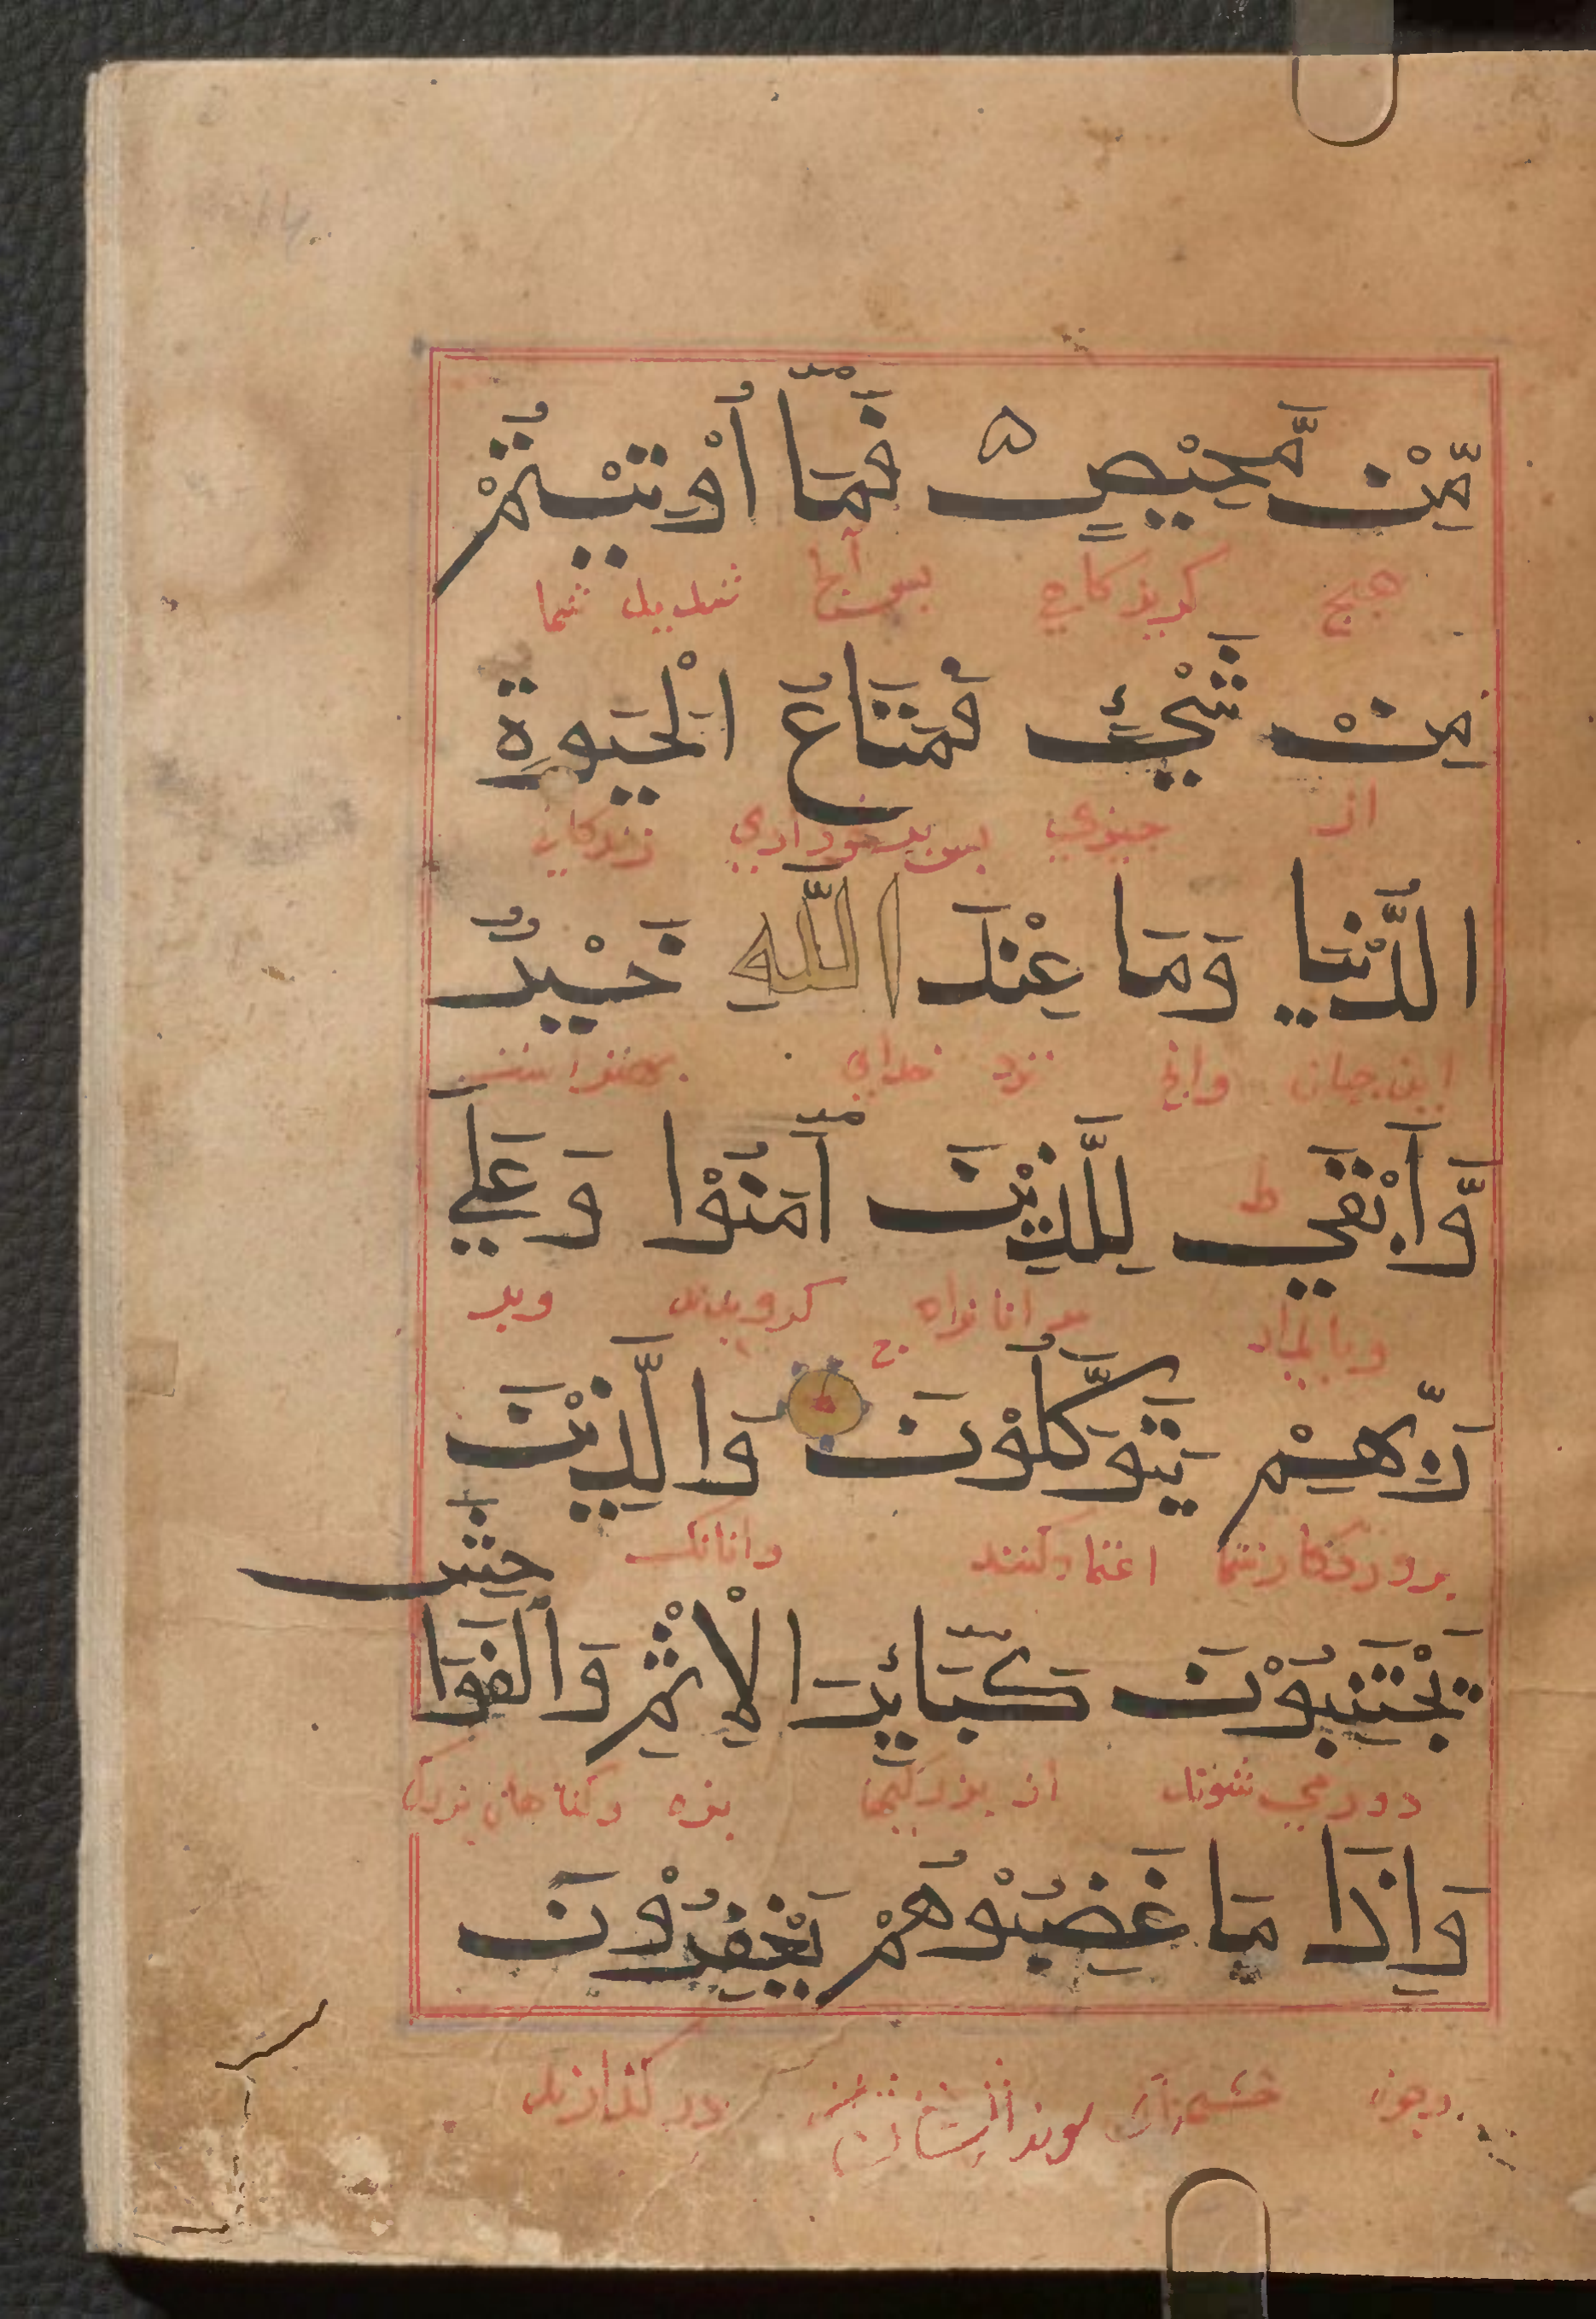 مِّنْ مَّحِيْصٍ ۵ فَمَآ أُوْتِيْتُمْ
هیچ کریزکاهی بس آنچ شدیدیذ شما
مِنْ شَيْءٍ فَمَتَاعُ الْحَيَوةِ
از چیزی بس برخورداری زندکانی
الدُّنْيَا وَمَا عِنْدَ اللّٰهِ خَيْرٌ
این جهان وانچ نزد خدای بهتر است
وَّأَبْقَى ط لِلَّذِيْنَ اٰمَنُوْا وَعَلَى
وبایدار مر انانراه کرویدند وبر
رَبِّهِمْ يَتَوَكَّلُوْنَ ج وَالَّذِيْنَ
برورذکارشما اعتماد کنند وانانک
يَجْتَنِبُوْنَ كَبَآئِرَ الْاِثْمِ وَالْفَوَا
حِشَ
دور می شوند از بزرکیها بزه وکناهان بزرک
وَاِذَا مَا غَضِبُوْا هُمْ يَغْفِرُوْنَ
وچون خشمناک شوند ایشان درکذارند